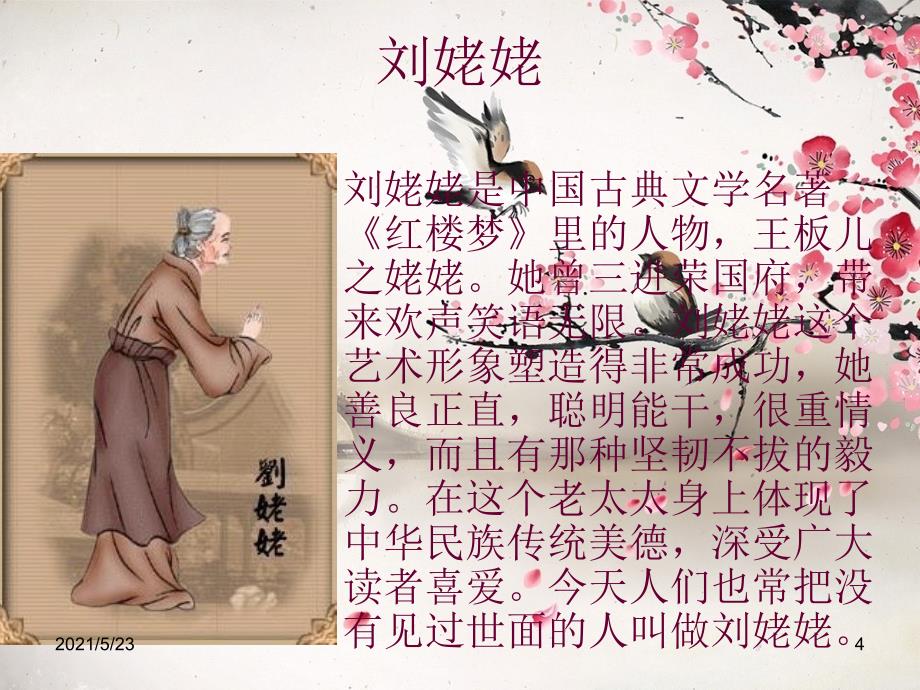 刘姥姥
刘姥姥是中国古典文学名著
《红楼梦》里的人物，王板儿
之姥姥。她曾三进荣国府，带
来欢声笑语无限。刘姥姥这个
艺术形象塑造得非常成功，她
善良正直，聪明能干，很重情
义，而且有那种坚韧不拔的毅
力。在这个老太太身上体现了
中华民族传统美德，深受广大
读者喜爱。今天人们也常把没
有见过世面的人叫做刘姥姥。
劉姥姥
2021/5/23
4